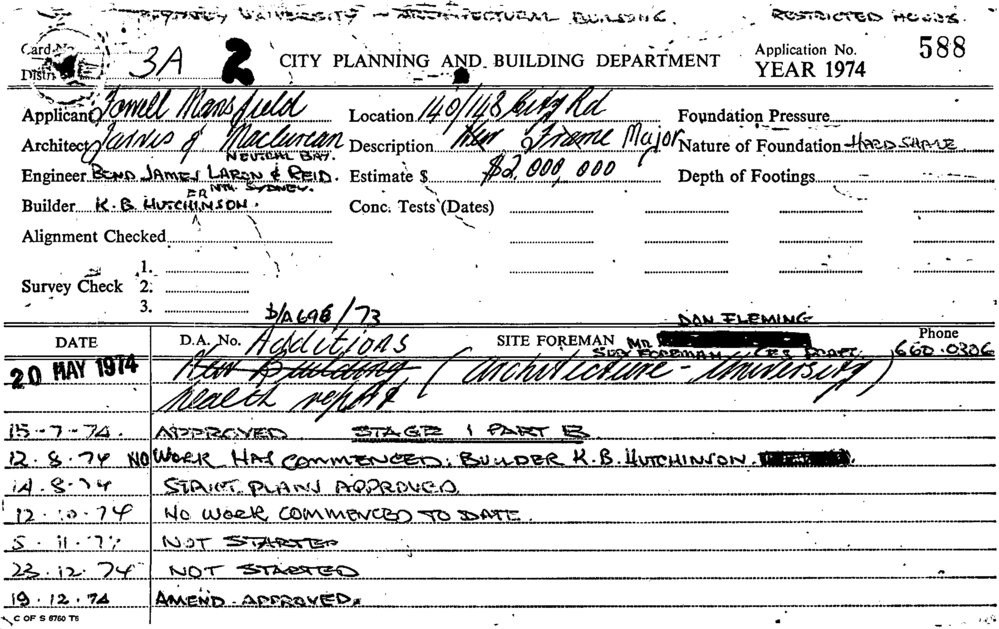 SYDNEY UNIVERSITY - ARCHITECTURAL BUILDING. RESTRICTED HOURS.
Card No.
Distri 3A 2 CITY PLANNING AND BUILDING DEPARTMENT Application No. 588
YEAR 1974
Applicant Fowell Mansfield Location 140/148 City Rd Foundation Pressure
Architect Jarvis & Maclurcan Description New Frame Major Nature of Foundation HARD SHALE
NEUTRAL BAY.
Engineer BOND JAMES LARON & REID. Estimate $ $2,000,000 Depth of Footings
NTH. SYDNEY.
Builder K.B. HUTCHINSON. Conc. Tests (Dates)
Alignment Checked
Survey Check 1.
2.
3.
D/A 698/73 DAN FLEMING
DATE D.A. No. Additions SITE FOREMAN MR. Phone
SITE FOREMAN 660.0306
20 MAY 1974 New Building (Architecture - University)
health report
15-7-74. APPROVED STAGE 1 PART B.
12.8.74 NO WORK HAS COMMENCED: BUILDER K.B. HUTCHINSON.
14.8.74 STRUCT. PLANS APPROVED.
12.10.74 NO WORK COMMENCED TO DATE.
5.11.74 NOT STARTED
23.12.74 NOT STARTED
19.12.74 AMEND. APPROVED.
C OF S 6760 T6